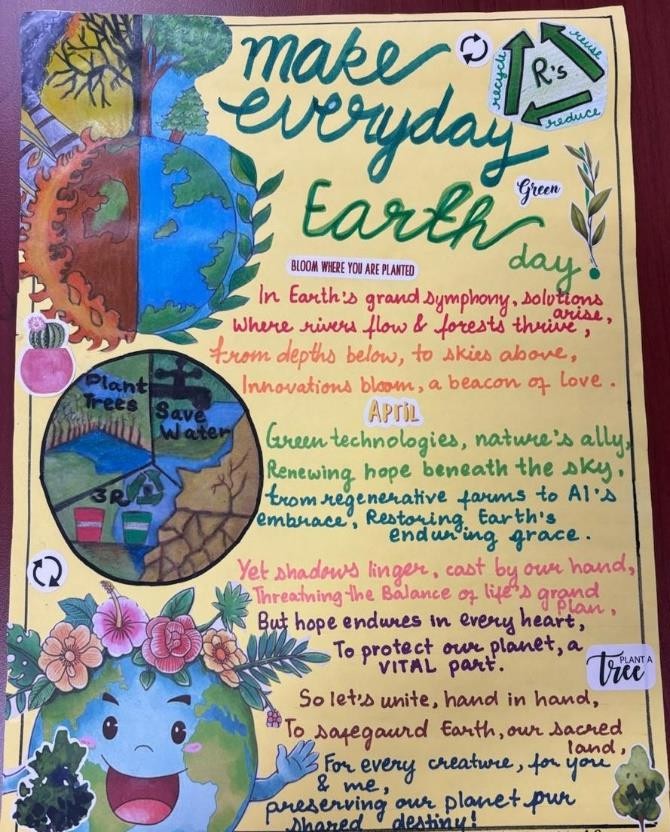 make
everyday
Earth
day!
recycle
reuse
R's
reduce
Green
BLOOM WHERE YOU ARE PLANTED
In Earth's grand symphony, solutions
arise,
Where rivers flow & forests thrive,
from depths below, to skies above,
Innovations bloom, a beacon of love.
APRIL
Green technologies, nature's ally,
Renewing hope beneath the sky,
from regenerative farms to AI's
embrace, Restoring Earth's
enduring grace.
Plant
Trees
Save
Water
3R
Yet shadows linger, cast by our hand,
Threatning the Balance of life's grand
Plan,
But hope endures in every heart,
To protect our planet, a
VITAL part.
PLANT A
tree
So let's unite, hand in hand,
To safegaurd Earth, our sacred
land,
For every creature, for you
& me,
preserving our planet our
shared destiny!